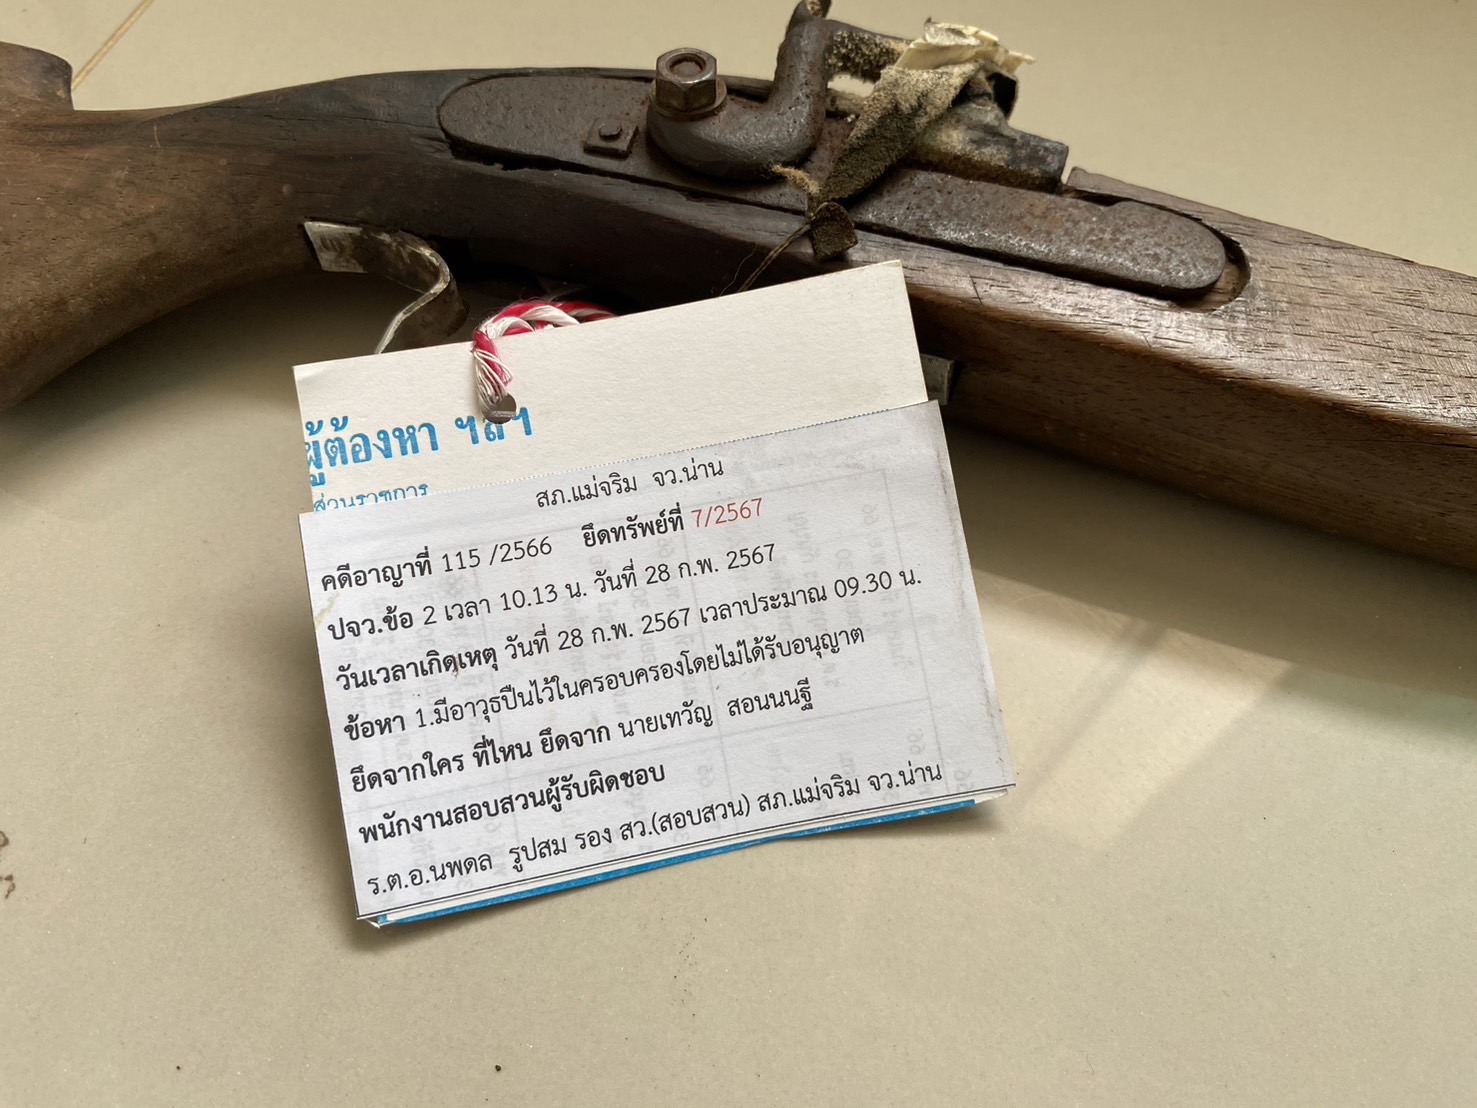 ผู้ต้องหา ฯลฯ
ส่วนราชการ
สภ.แม่จริม จว.น่าน
คดีอาญาที่ 115 /2566 ยึดทรัพย์ที่ 7/2567
ปจว.ข้อ 2 เวลา 10.13 น. วันที่ 28 ก.พ. 2567
วันเวลาเกิดเหตุ วันที่ 28 ก.พ. 2567 เวลาประมาณ 09.30 น.
ข้อหา 1.มีอาวุธปืนไว้ในครอบครองโดยไม่ได้รับอนุญาต
ยึดจากใคร ที่ไหน ยึดจาก นายเทวัญ สอนนนฐี
พนักงานสอบสวนผู้รับผิดชอบ
ร.ต.อ.นพดล รูปสม รอง สว.(สอบสวน) สภ.แม่จริม จว.น่าน